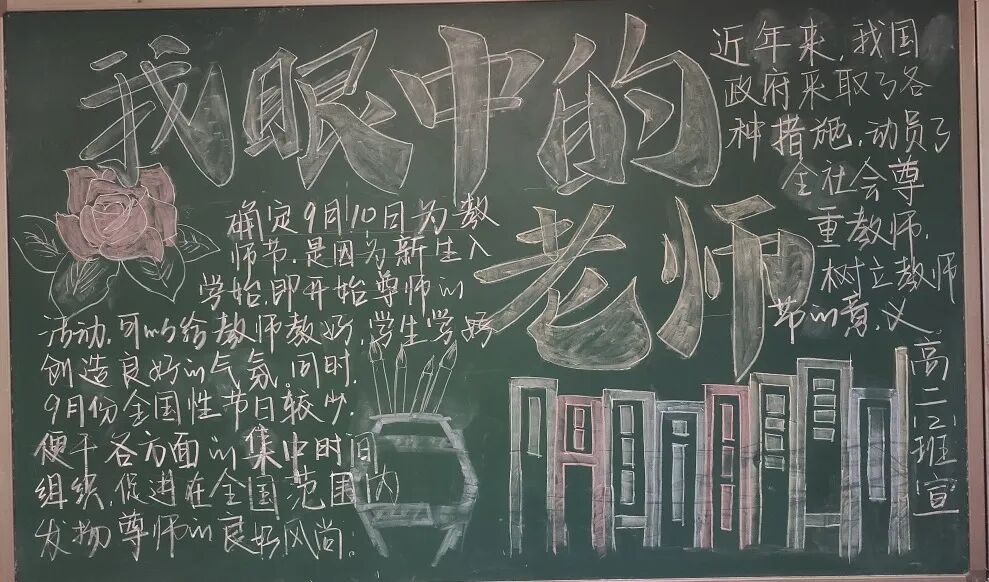 我眼中的
老师
确定9月10日为教
师节.是因为新生入
学始.即开始尊师的
活动.可以给教师教好.学生学好
创造良好的气氛.同时.
9月份全国性节日较少.
便于各方面的集中时间
组织.促进在全国范围内
发扬尊师的良好风尚.
近年来,我国
政府采取了各
种措施.动员了
全社会尊
重教师.
树立教师
节的意义.
高二(2)班宣